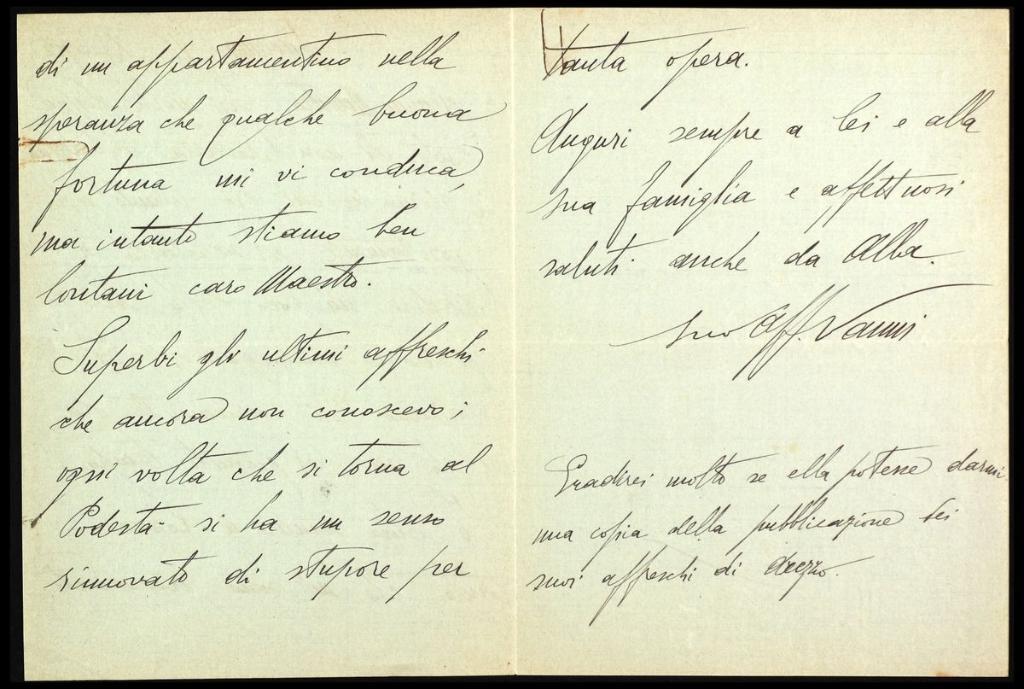 di un appartamentino nella
speranza che qualche buona
fortuna mi vi conduca,
ma intanto stiamo ben
lontani caro Maestro.
Superbi gli ultimi affreschi
che ancora non conoscevo;
ogni volta che si torna al
Podestà si ha un senso
rinnovato di stupore per
tanta opera.
Auguri sempre a lei e alla
sua famiglia e affettuosi
saluti anche da Alba.
suo aff. Vanni
Gradirei molto se ella potesse darmi
una copia della pubblicazione dei
suoi affreschi di Arezzo.